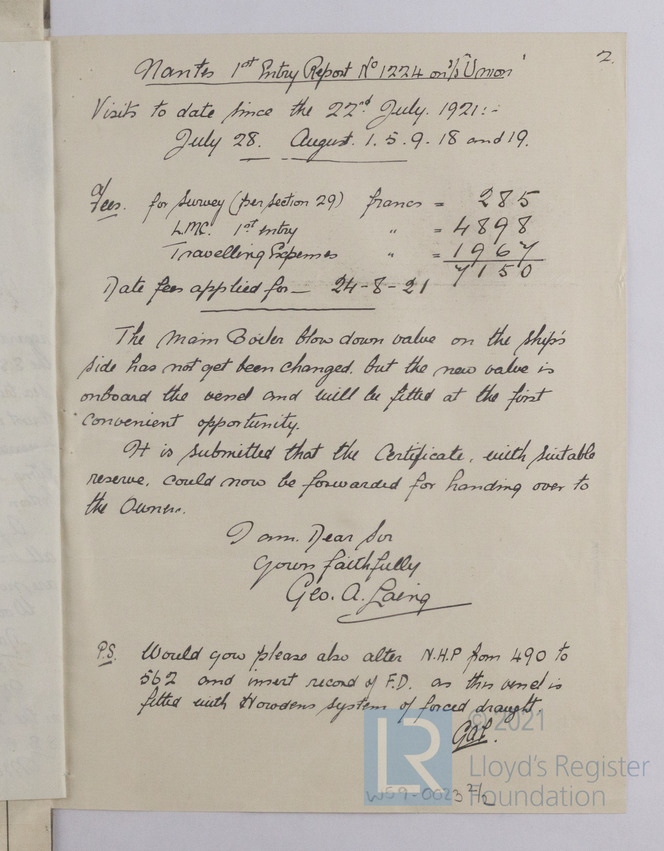 2.
Nantes 1st Entry Report No 1224 on S/S "Union"
Visits to date since the 22nd July. 1921:-
July 28. August. 1. 5. 9. 18 and 19.
Fees. for Survey (per section 29) francs = 285
LMC. 1st entry " = 4898
Travelling Expenses " = 1967
7150
Date fees applied for — 24-8-21
The Main Boiler blow down valve on the ship's
side has not yet been changed, but the new valve is
onboard the vessel and will be fitted at the first
convenient opportunity.
It is submitted that the Certificate, with suitable
reserve, could now be forwarded for handing over to
the Owners.
I am. Dear Sir
Yours faithfully
Geo. A. Laing
P.S. Would you please also alter N.H.P from 490 to
562 and insert record of F.D. as this vessel is
fitted with Howdens system of forced draught.
GAL.
LR
© 2021
Lloyd's Register
Foundation
W59-0023 2/2